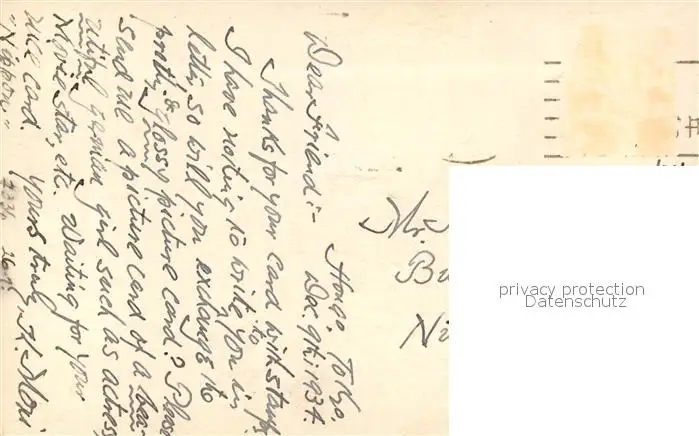 Hongo. Tokyo.
Dec. 9th. 1934.
Dear Friend:-
Thanks for your card with stamp.
I have noting to write to you in
letter, so will you exchange the
pretty & glossy picture card? Please
send me a picture card of a beau-
utiful german girl such as actress,
Movie star, etc. Waiting for your
nice card. yours truly, K. Mori
"Nippon."
Mr.
Bu
Ni
privacy protection
Datenschutz